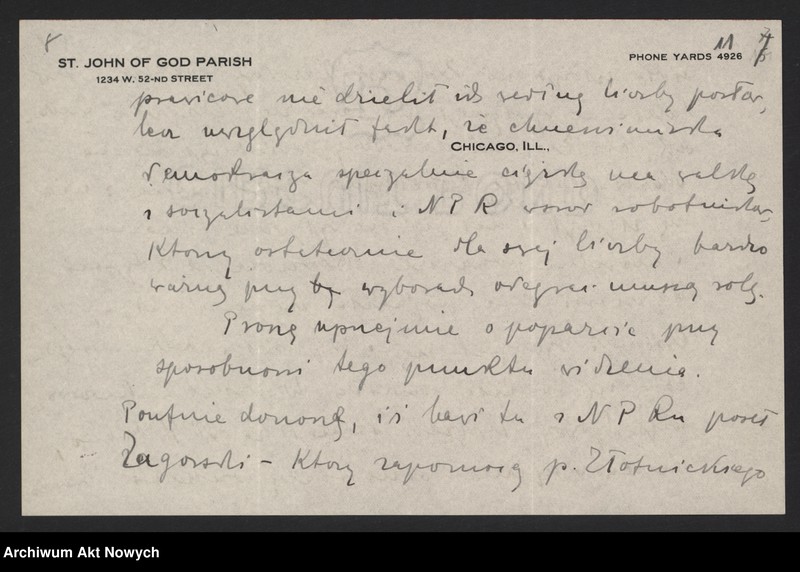 8
ST. JOHN OF GOD PARISH
1234 W. 52-ND STREET
PHONE YARDS 4926
11
7
prawicowe nie dzielił ich według liczby posłów,
lecz uwzględnił fakt, że chrześcijańska
CHICAGO, ILL.,
Demokracja specjalnie ciężką ma walkę
z socjalistami i NPR wśród robotników,
Którzy ostatecznie dla swej liczby bardzo
ważną przy wyborach odegrać muszą rolę.
Proszę uprzejmie o poparcie przy
sposobności tego punktu widzenia.
Poufnie donoszę, iż bawi tu z NPRu poseł
Zagorski – Który zapomocą p. Złotnickiego
Archiwum Akt Nowych